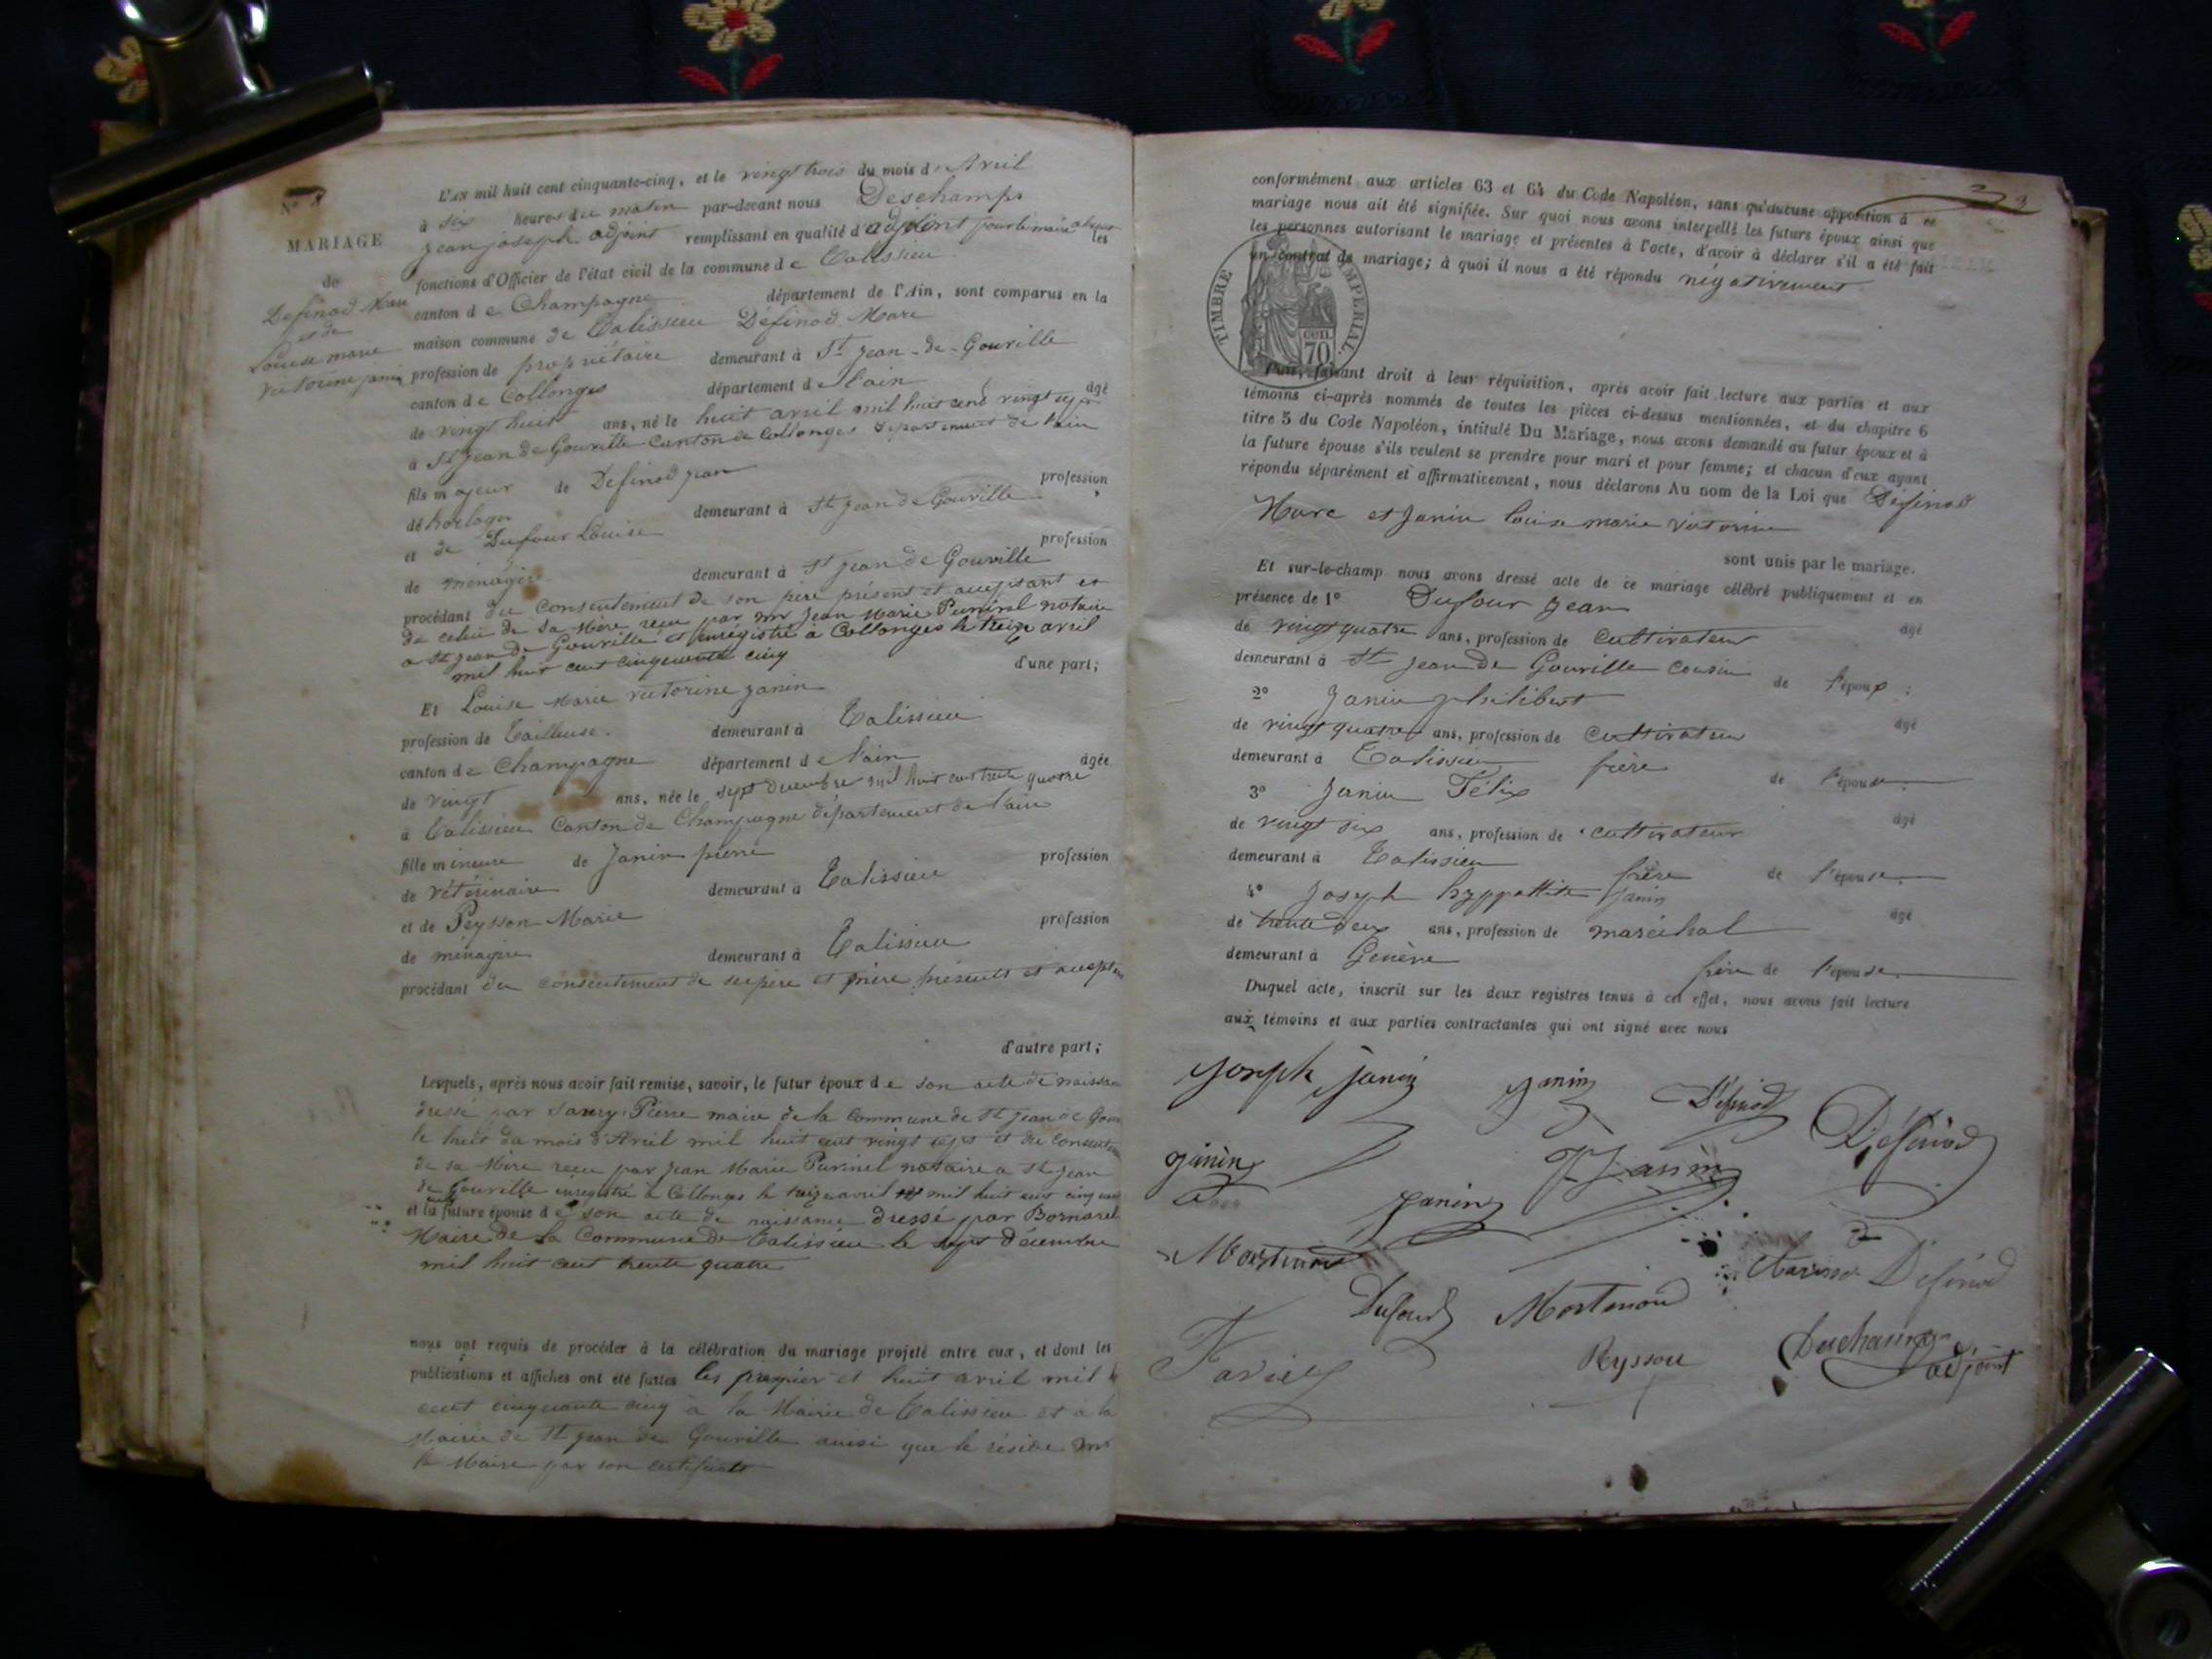 L'AN mil huit cent cinquante-cinq, et le vingt trois du mois d'Avril
à six heures du matin par-devant nous Deschamps
jean joseph adjoint remplissant en qualité d'adjoint pour le maire absent les
fonctions d'Officier de l'état civil de la commune de Talissieu
canton de Champagne département de l'Ain, sont comparus en la
maison commune de Talissieu Définod Marc
profession de propriétaire demeurant à St jean-de-Gonville
canton de Collonges département de l'ain âgé
de vingt huit ans, né le huit avril mil huit cent vingt sept
à St jean de Gonville Canton de Collonges département de l'ain
fils majeur de Définod jean profession
de horloger demeurant à St jean de Gonville
et de Dufour Louise profession
de ménagère demeurant à St jean de Gonville
procédant du consentement de son père présent et acceptant et
de celui de sa Mère reçu par mr jean Marie notaire
a St jean de Gonville et enregistré à Collonges le treize avril
mil huit cent cinquante cinq d'une part;
Et Louise Marie victorine janin
profession de Tailleuse. demeurant à Talissieu
canton de Champagne département de l'ain âgée
de vingt ans, née le sept décembre mil huit cent trente quatre
à Talissieu Canton de Champagne département de l'ain
fille mineure de Janin pierre profession
de vétérinaire demeurant à Talissieu
et de Peysson Marie profession
de ménagère demeurant à Talissieu
procédant du consentement de ses père et mère présents et accept
d'autre part;
Lesquels, après nous avoir fait remise, savoir, le futur époux de son acte de naissance
dressé par Pierre maire de la commune de St jean de Gon
le huit du mois d'Avril mil huit cent vingt sept et du consente
de sa Mère reçu par jean Marie notaire a St jean
de Gonville enregistré à Collonges le treize avril mil huit cent cinquante
et la future épouse de son acte de naissance dressé par Bornarel
Maire de la Commune de Talissieu le sept décembre
mil huit cent trente quatre
nous ont requis de procéder à la célébration du mariage projeté entre eux, et dont les
publications et affiches ont été faites les premier et huit avril mil h
cent cinquante cinq à la Mairie de Talissieu et à la
Mairie de St jean de Gonville ainsi que le mr
le Maire par son certificat
N° 8
MARIAGE
de
Définod Marc
et de
Louise marie
victorine janin
conformément aux articles 63 et 64 du Code Napoléon, sans qu'aucune opposition à ce
mariage nous ait été signifiée. Sur quoi nous avons interpellé les futurs époux ainsi que
les personnes autorisant le mariage et présentes à l'acte, d'avoir à déclarer s'il a été fait
un contrat de mariage; à quoi il nous a été répondu négativement
TIMBRE IMPERIAL.
CEN. 70
Puis, faisant droit à leur réquisition, après avoir fait lecture aux parties et aux
témoins ci-après nommés de toutes les pièces ci-dessus mentionnées, et du chapitre 6
titre 5 du Code Napoléon, intitulé Du Mariage, nous avons demandé au futur époux et à
la future épouse s'ils veulent se prendre pour mari et pour femme; et chacun d'eux ayant
répondu séparément et affirmativement, nous déclarons Au nom de la Loi que Définod
Marc et Janin louise marie victorine
sont unis par le mariage.
Et sur-le-champ nous avons dressé acte de ce mariage célébré publiquement et en
présence de 1° Dufour jean âgé
de vingt quatre ans, profession de cultivateur
demeurant à St jean de Gonville cousin de l'époux;
2° Janin philibert âgé
de vingt quatre ans, profession de cultivateur
demeurant à Talissieu frère de l'épouse
3° Janin Félix âgé
de vingt six ans, profession de cultivateur
demeurant à Talissieu frère de l'épouse
4° Joseph hyppollite janin âgé
de trente deux ans, profession de maréchal
demeurant à Genève frère de l'épouse
Duquel acte, inscrit sur les deux registres tenus à cet effet, nous avons fait lecture
aux témoins et aux parties contractantes qui ont signé avec nous
Joseph janin janin Définod Définod
janin Janin
janin
Mortinod Définod
Dufour Mortinod
Favier Peysson Deschamps adjoint